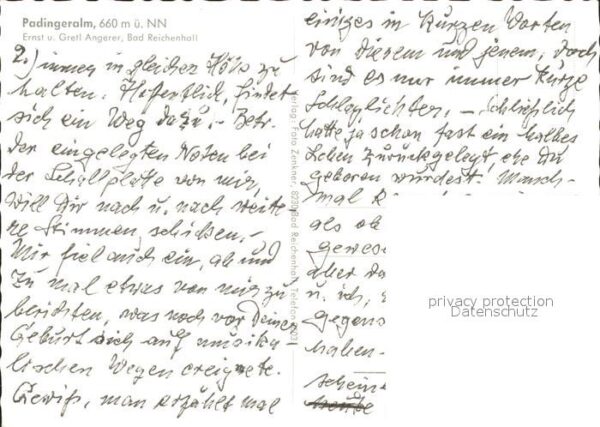 Padingeralm, 660 m ü. NN
Ernst u. Gretl Angerer, Bad Reichenhall
2.) immer in gleicher Höhe zu
halten. Hoffentlich findet
sich ein Weg dazu. - Betr.
der eingelegten Noten bei
der Schallplatte von mir,
will Dir nach u. nach weite-
re Stimmen schicken. -
Mir fiel auch ein, ab und
zu mal etwas von mir zu
berichten, was noch vor Deiner
Geburt sich auf musika-
lischen Wegen ereignete.
Gewiß, man erzählt mal
Verlag: Foto Zenkner, 8230 Bad Reichenhall, Telefon
einiges in kurzen Worten
von diesem und jenem, doch
sind es nur immer kurze
Schlaglichter, - schließlich
hatte ja schon fast ein halbes
Leben zurückgelegt ehe Du
geboren wurdest. Manch-
mal
als ob
gewes
aber da
u. ich,
gegens
haben -
schein
heute
privacy protection
Datenschutz